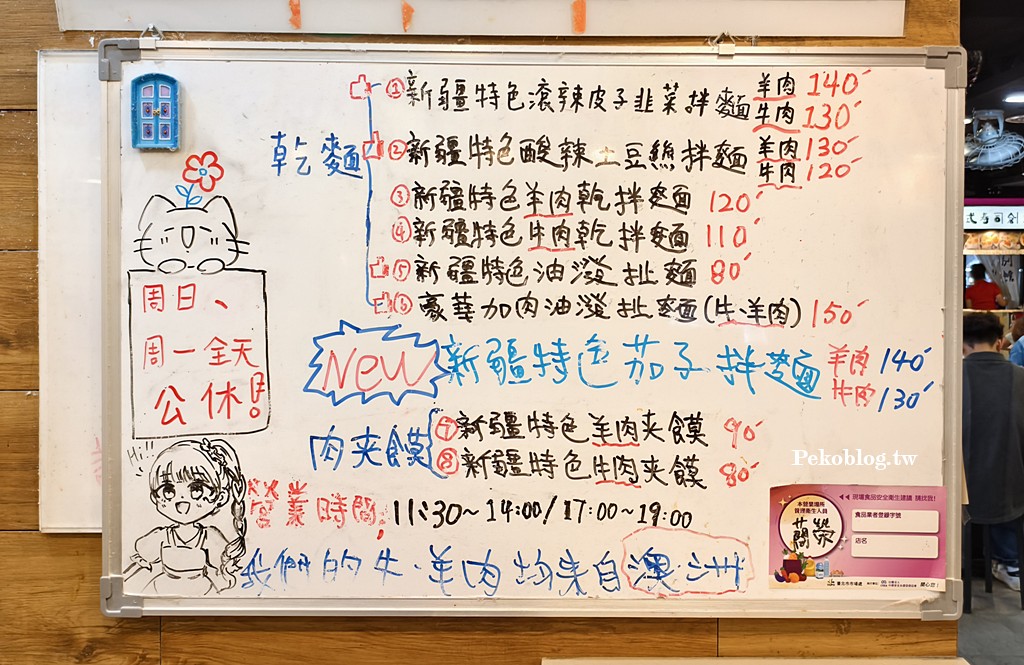 乾麵
①新疆特色滾辣皮子韭菜拌麵 羊肉 140 牛肉 130
②新疆特色酸辣土豆絲拌麵 羊肉 130 牛肉 120
③新疆特色羊肉乾拌麵 120
④新疆特色牛肉乾拌麵 110
⑤新疆特色油潑扯麵 80
⑥豪華加肉油潑扯麵(牛.羊肉) 150
New 新疆特色茄子拌麵 羊肉 140 牛肉 130
肉夾饃
⑦新疆特色羊肉夾饃 90
⑧新疆特色牛肉夾饃 80
營業時間: 11:30~14:00/17:00~19:00
我們的牛.羊肉均來自澳洲
周日、
周一全天
公休!
Hi!!!
Pekoblog.tw
現場食品安全衛生建議 請找我!
本營業場所
管理衛生人員
食品業者登錄字號
店名
臺北市市場處
關心您!